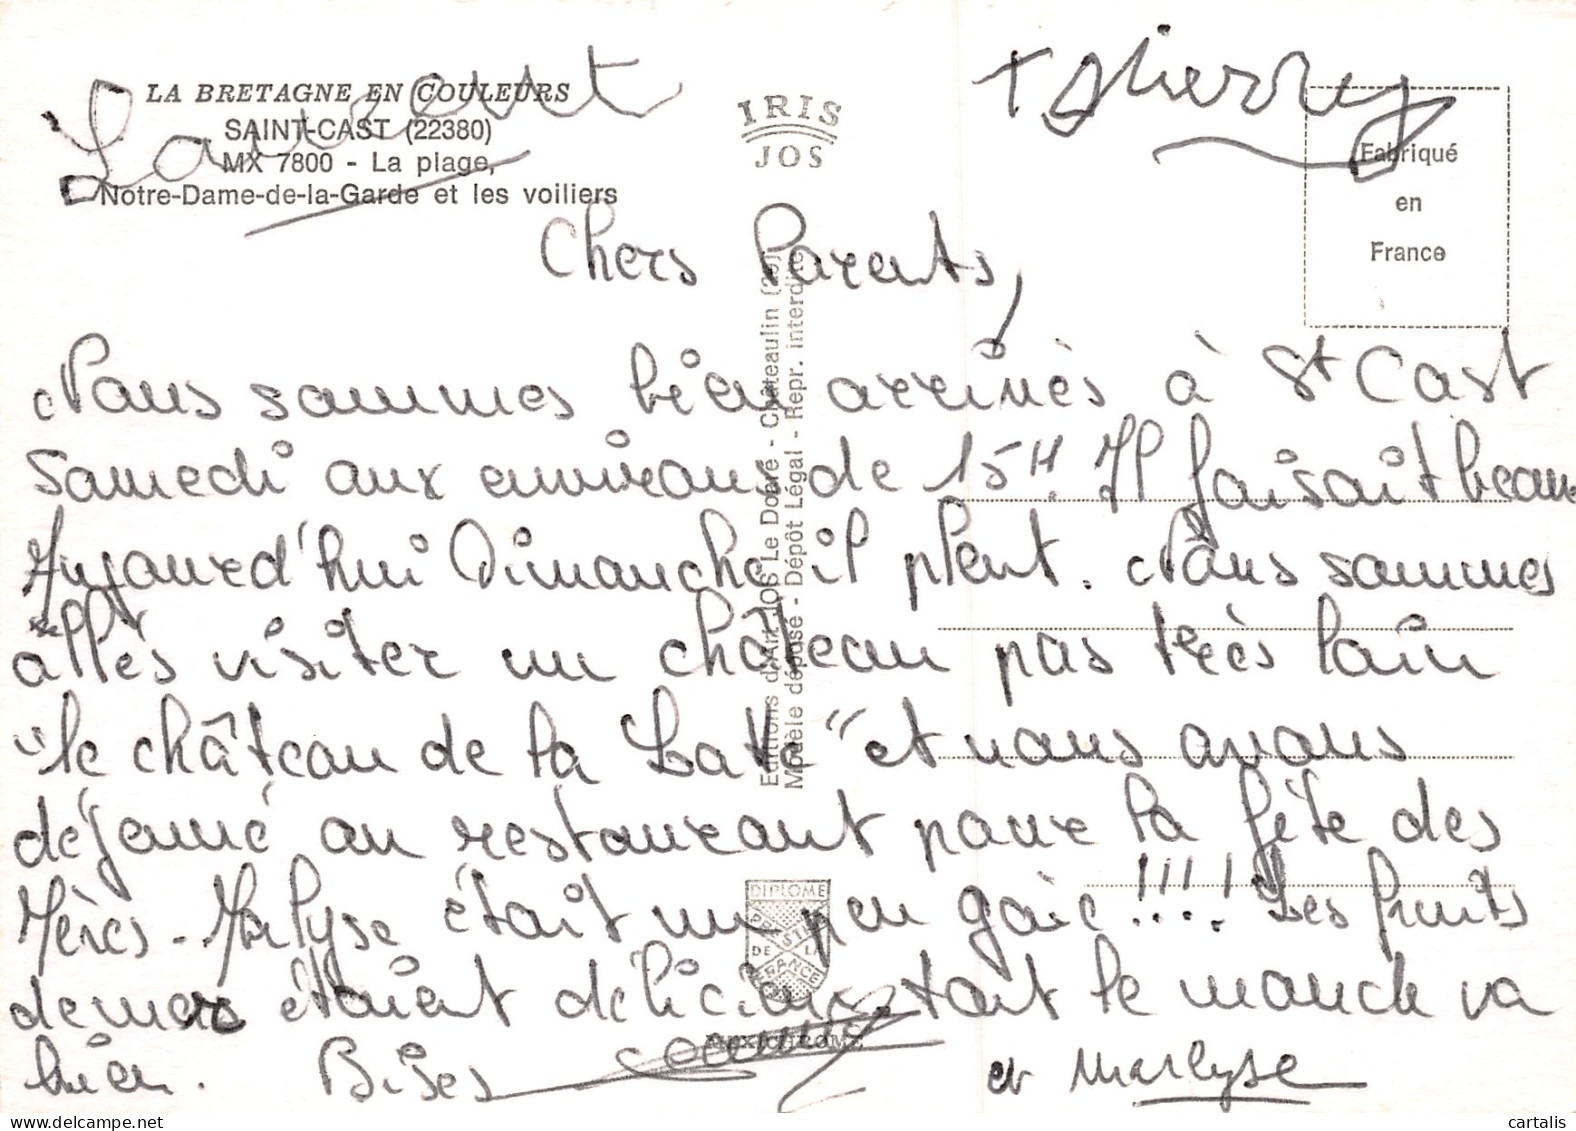 LA BRETAGNE EN COULEURS
SAINT-CAST (22380)
MX 7800 - La plage,
Notre-Dame-de-la-Garde et les voiliers
Laurent
IRIS
JOS
Thierry
Fabriqué
en
France
Chers Parents,
Nous sommes bien arrivés à St Cast
Samedi aux environs de 15H. Il faisait beau
Aujourd'hui Dimanche il pleut. Nous sommes
allés visiter un château pas très loin
"le château de la Latte" et nous avons
déjeuné au restaurant pour la fête des
Mères - Marlyse était un peu gaie !!!! Les fruits
de mer étaient délicieux. tout le monde va
bien. Bises
et Marlyse
Editions d'Art JOS Le Doaré - Châteaulin (29)
Modèle déposé - Dépôt Légal - Repr. interdite
DIPLOME
DE LA
FRANCE
MEXICHROME
cartalis